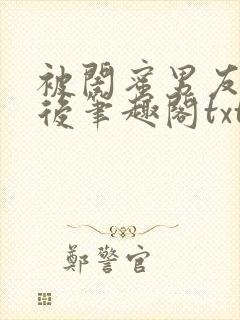 被閨蜜男友
後筆趣閣txt
鄭警官